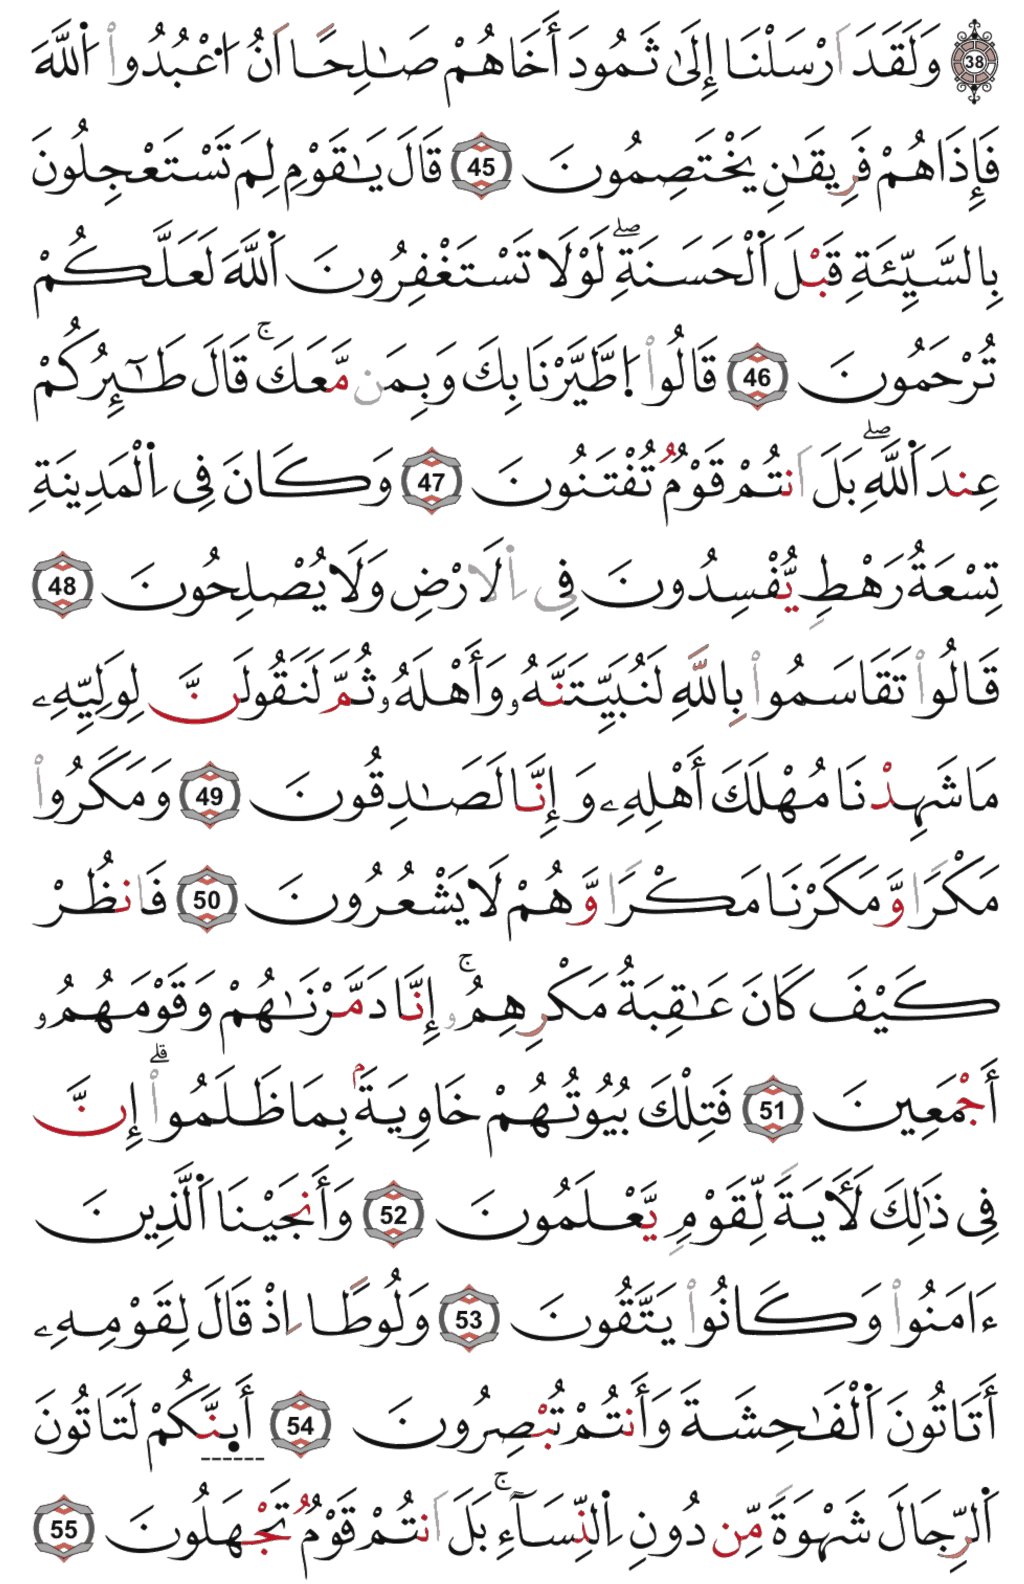 38 وَلَقَدَ اَرْسَلْنَا إِلَىٰ ثَمُودَ أَخَاهُمْ صَـٰلِحًا اَنُ اُعْبُدُوا۟ اُللَّهَ
فَإِذَا هُمْ فَرِيقَـٰنِ يَخْتَصِمُونَ 45 قَالَ يَـٰقَوْمِ لِمَ تَسْتَعْجِلُونَ
بِالسَّيِّئَةِ قَبْلَ اَلْحَسَنَةِۖ لَوْلَا تَسْتَغْفِرُونَ اَللَّهَ لَعَلَّكُمْ
تُرْحَمُونَ 46 قَالُوا۟ اُ۪طَّيَّرْنَا بِكَ وَبِمَن مَّعَكَۚ قَالَ طَـٰٓئِرُكُمْ
عِندَ اَللَّهِۖ بَلَ اَنتُمْ قَوْمٌ تُفْتَنُونَ 47 وَكَانَ فِى اِ۬لْمَدِينَةِ
تِسْعَةُ رَهْطٍ يُّفْسِدُونَ فِى اِ۬لَارْضِ وَلَا يُصْلِحُونَ 48
قَالُوا۟ تَقَاسَمُوا۟ بِاللَّهِ لَنُبَيِّتَنَّهُۥ وَأَهْلَهُۥ ثُمَّ لَنَقُولَنَّ لِوَلِيِّهِۦ
مَا شَهِدْنَا مُهْلَكَ أَهْلِهِۦ وَإِنَّا لَصَـٰدِقُونَ 49 وَمَكَرُوا۟
مَكْرًا وَّمَكَرْنَا مَكْرًا وَّهُمْ لَا يَشْعُرُونَ 50 فَانظُرْ
كَيْفَ كَانَ عَـٰقِبَةُ مَكْرِهِمُۥٓۚ إِنَّا دَمَّرْنَـٰهُمْ وَقَوْمَهُمُۥٓ
أَجْمَعِينَ 51 فَتِلْكَ بُيُوتُهُمْ خَاوِيَةَۢ بِمَا ظَلَمُوا۟ۗ إِنَّ
فِى ذَٰلِكَ لَأَيَةً لِّقَوْمٍ يَّعْلَمُونَ 52 وَأَنجَيْنَا اَلَّذِينَ
ءَامَنُوا۟ وَكَانُوا۟ يَتَّقُونَ 53 وَلُوطًا اِذْ قَالَ لِقَوْمِهِۦ
أَتَاتُونَ اَلْفَـٰحِشَةَ وَأَنتُمْ تُبْصِرُونَ 54 أَى۪نَّكُمْ لَتَاتُونَ
اَلرِّجَالَ شَهْوَةً مِّن دُونِ اِ۬لنِّسَآءِۚ بَلَ اَنتُمْ قَوْمٌ تَجْهَلُونَ 55